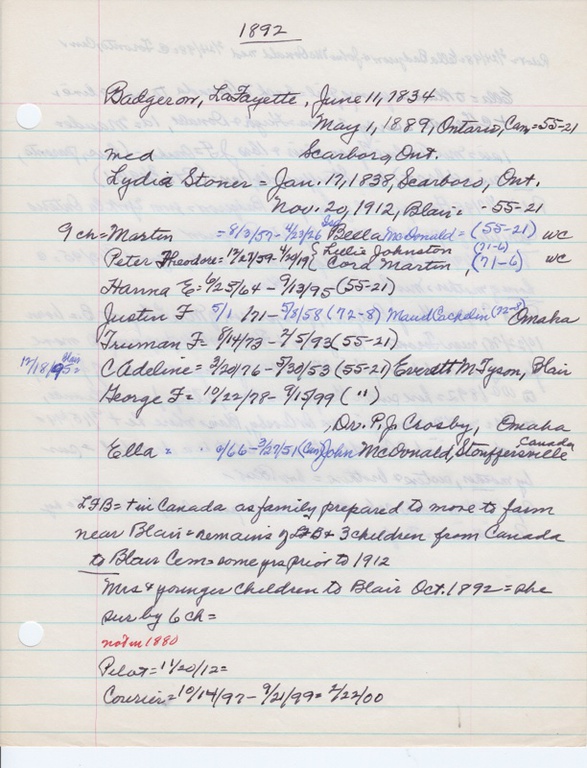 1892
Badgerow, LaFayette, June 11, 1834
May 1, 1889, Ontario, Can = 55-21
med Scarboro, Ont.
Lydia Stoner = Jan. 17, 1838, Scarboro, Ont.
Nov. 20, 1912, Blair. - 55-21
9 ch = Martin = 8/3/57 - 4/23/26 Isabella McDonald = (55-21) WC
Peter Theodore = 12/27/59 - 4/20/19 { Lillie Johnston (71-6)
Cora Martin, (71-6) WC
Hanna E = 6/25/64 - 9/13/95 (55-21)
Justin F 5/1/71 - 5/3/58 (72-8) Maud (72-8) Omaha
Truman F = 8/14/73 - 2/5/93 (55-21)
12/18/95 = Blair C Adeline = 3/20/76 - 5/30/53 (55-21) Everett M Tyson, Blair
George F = 10/22/78 - 9/15/99 (")
, Dr. P. J. Crosby, Omaha
Ella = /66 - 2/27/51 (Can) John McDonald, Stouffersville Canada
LFB = + in Canada as family prepared to move to farm
near Blair = remains of LFB + 3 children from Canada
to Blair Cem = some yrs prior to 1912
Mrs + younger children to Blair Oct. 1892 = she
sur by 6 ch =
not in 1880
Pilot = 11/20/12 =
Courier = 10/14/97 - 9/21/99 = 2/22/00